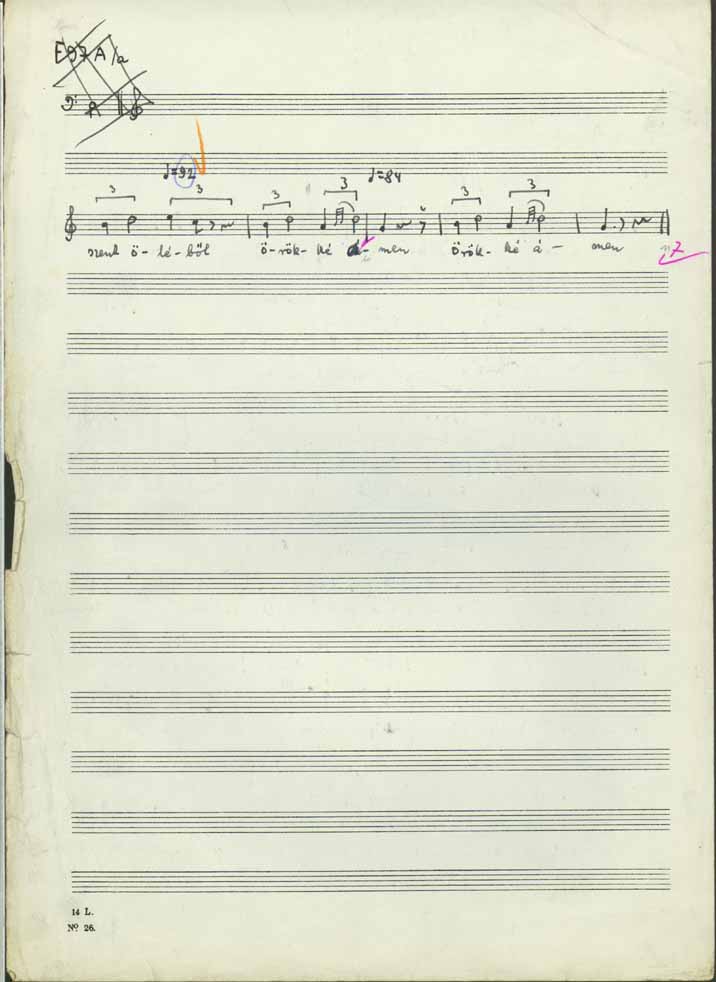 E97 A/a
A
♩=92 ♩=84
3 3 3 3 3 3
szent ö- lé- ből ö- rök- ké á- men örök- ké á- men 7
14 L.
Nº 26.